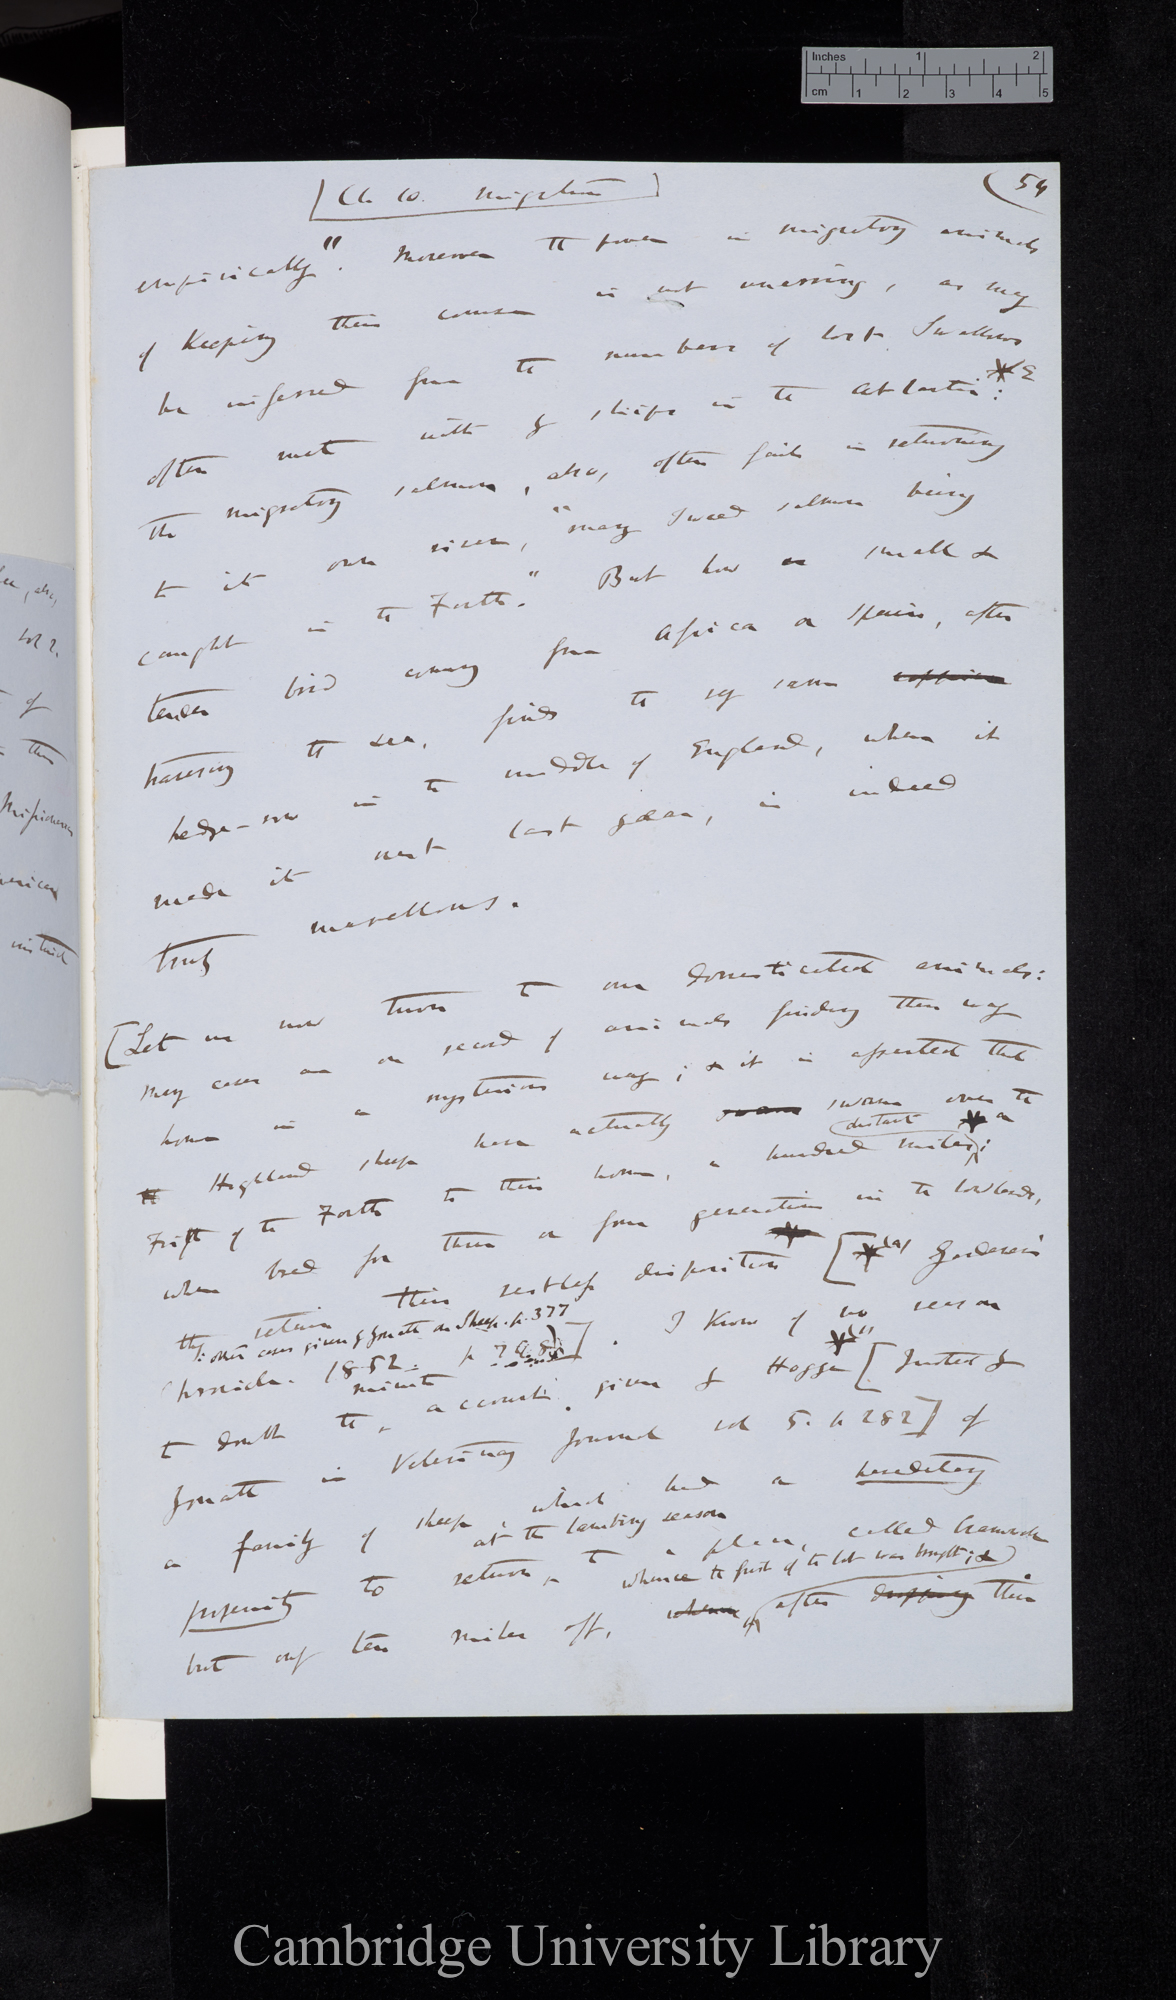 Inches 1 2
cm 1 2 3 4 5
[Ch 10. Migration]
(54
empirically". Moreover the power in migratory animals
of keeping their course is not unerring, as may
be inferred from the numbers of lost Swallows
often met with by ships in the Atlantic:
the migratory salmon, also, often fails in returning
to its own river, "many Tweed salmon being
caught in the Forth." But how a small &
tender bird coming from Africa or Spain, after
traversing the sea, finds the very same
hedge-row in the middle of England, where it
made its nest last year, is indeed
truly marvellous.
[Let us now turn to our domesticated animals:
many cases are on record of animals finding their way
home in a mysterious way; & it is asserted that
Highland sheep have actually swam swum over the
Frith of the Forth to their home, a hundred miles distant;
when bred for three or four generations in the lowlands,
they retain their restless disposition [ Gardener's
Chronicle. 1852. p 798: other cases given by Youatt on Sheep. p. 377]. I know of no reason
to doubt the minute account given by Hogg [quoted by
Youatt in Veterinary Journal vol 5. p 282] of
a family of sheep which had a hereditary
propensity to return at the lambing season to a place, called Crawmel
but only ten miles off, whence the first of the lot was bought; & after their
Cambridge University Library